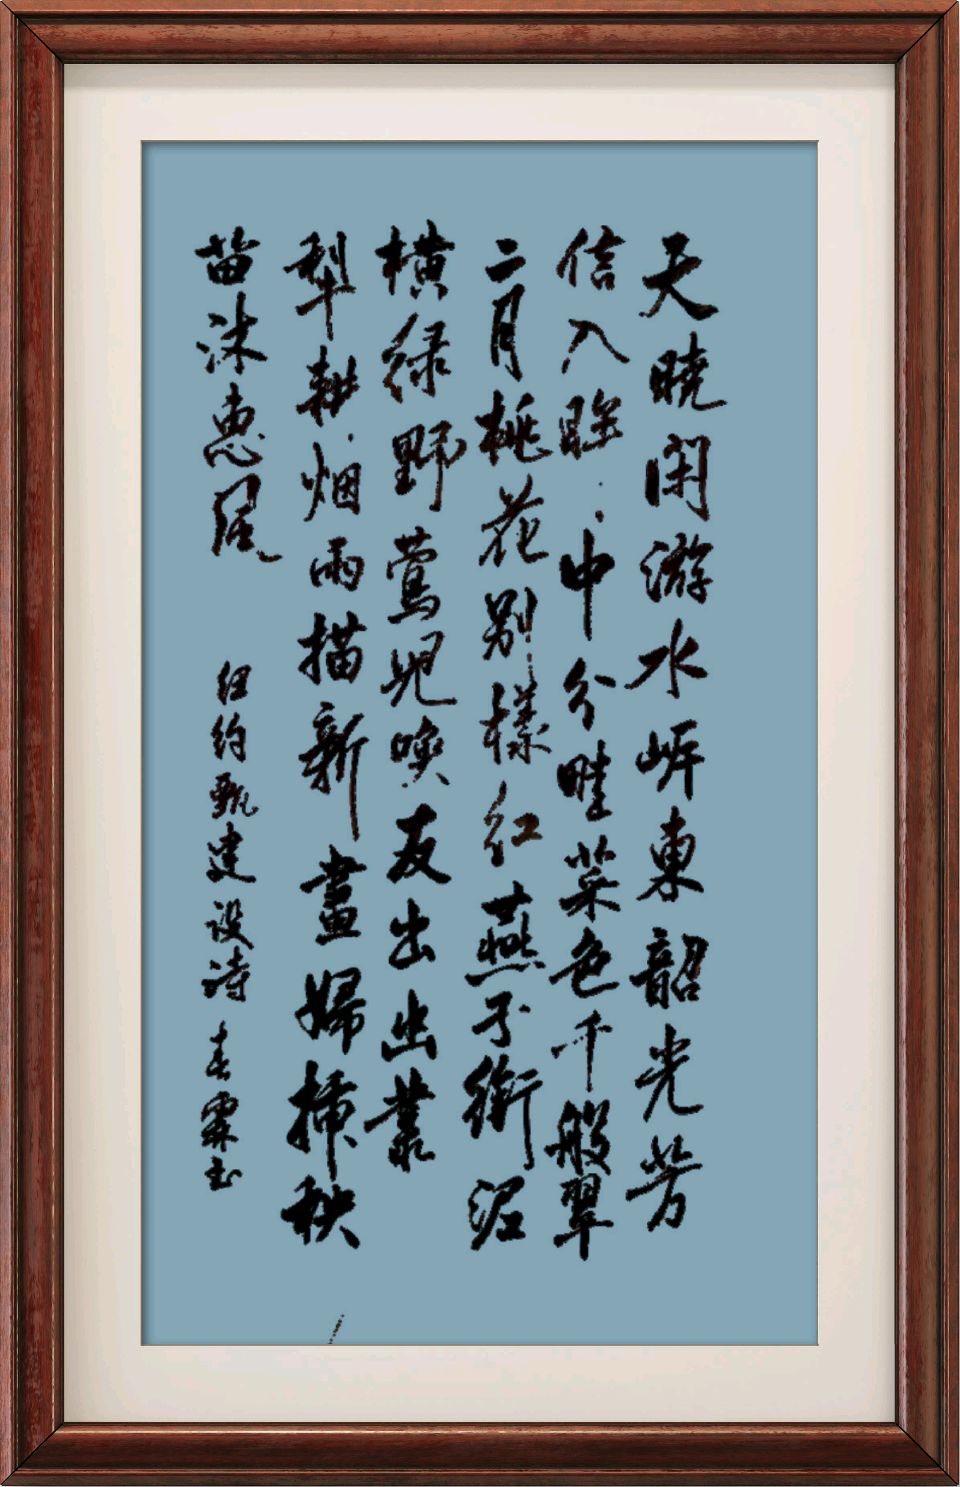 天曉閑游水岸東韶光芳
信入眸中分畦菜色千般翠
二月桃花别樣红燕子銜泥
横绿野鶯兒唤友出出叢
犁耕烟雨描新畫婦插秧
苗沐惠風
纽约甄建设诗春霖书